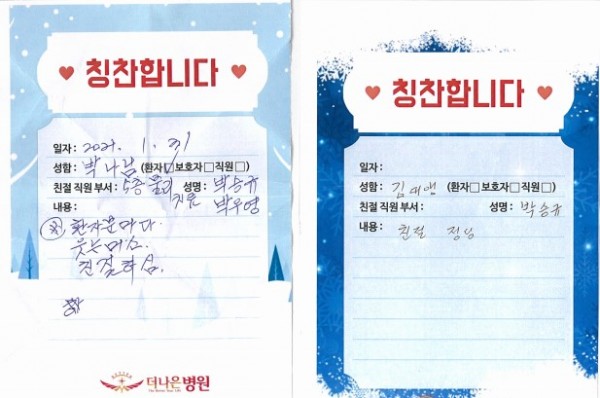 칭찬합니다
일자: 2021. 1. 31
성함: 박나님 (환자☑보호자□직원□)
친절 직원 부서: 5층 물리치료 성명: 박승규
박우영
내용:
환자분마다
웃는 미소
친절하심
더나은병원
칭찬합니다
일자:
성함: 김대맹 (환자□보호자□직원□)
친절 직원 부서: 성명: 박승규
내용: 친절 정성